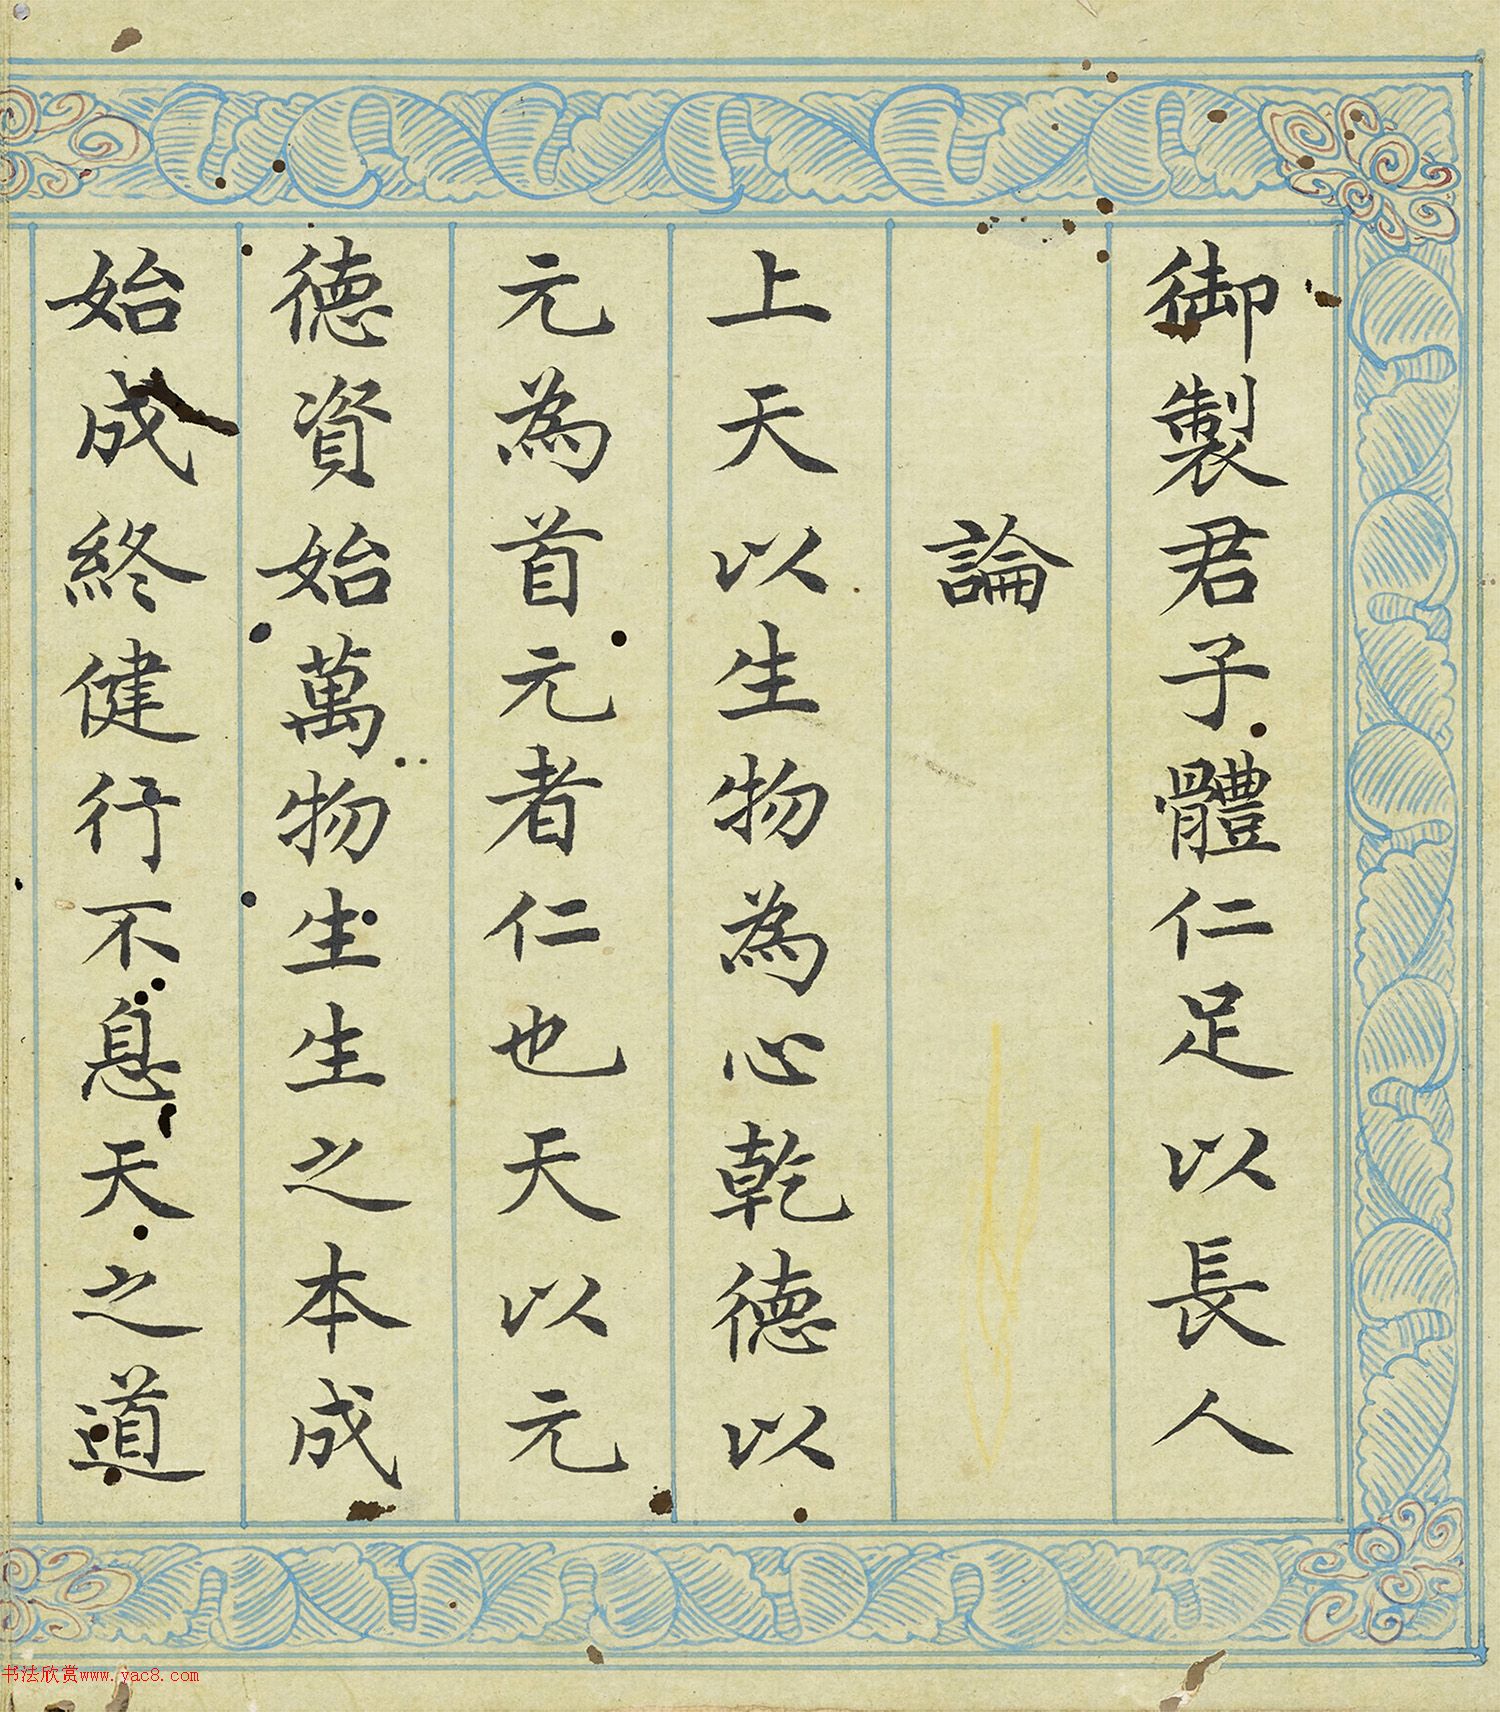 御製君子體仁足以長人
論
上天以生物為心乾德以
元為首元者仁也天以元
德資始萬物生生之本成
始成終健行不息天之道
书法欣赏www.yac8.com